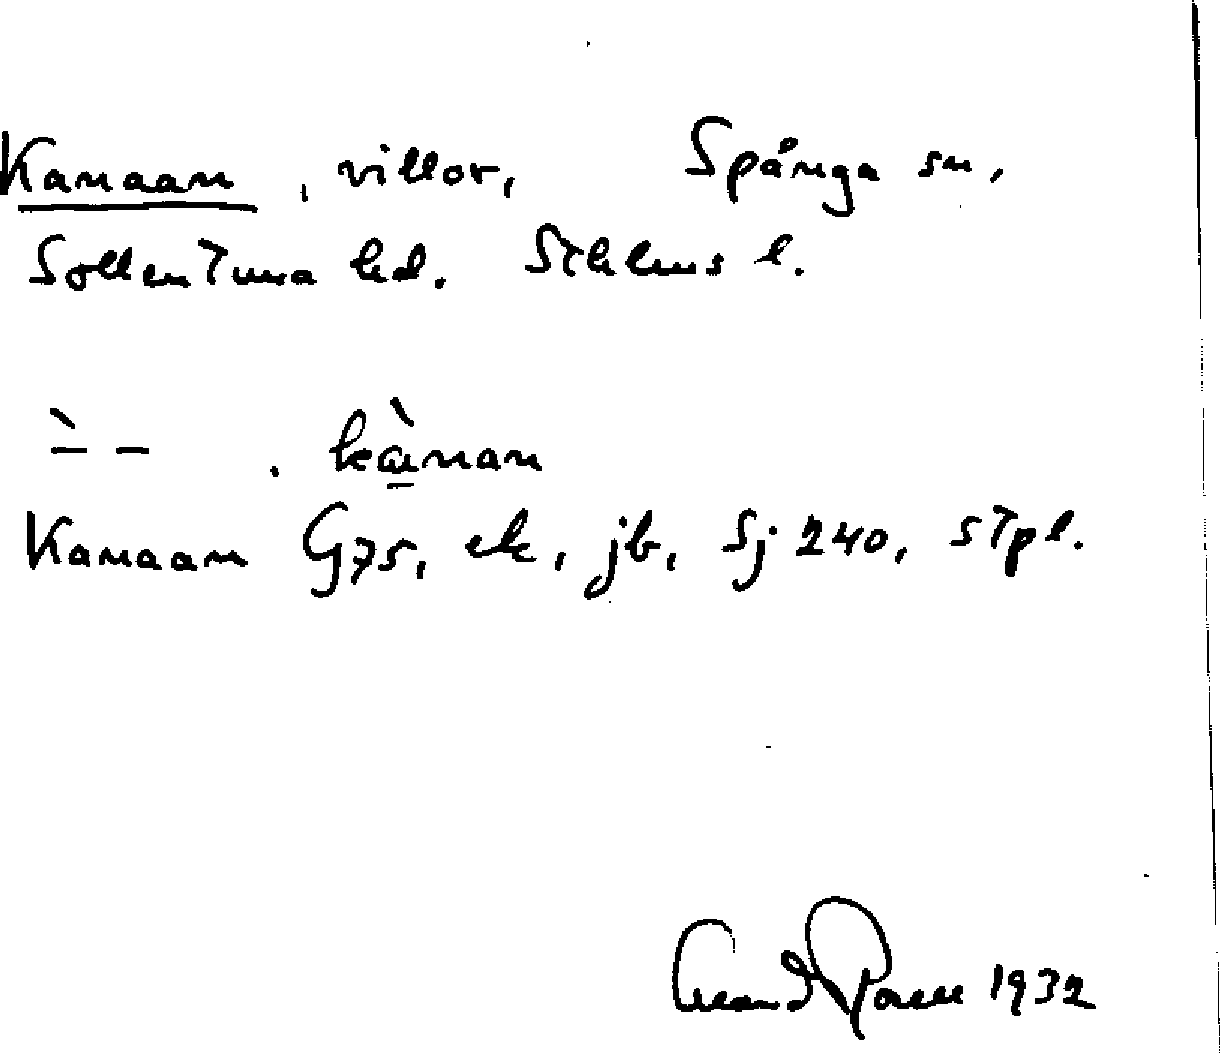 Kanaan, villor, Spånga sn,
Sollentuna hd. Sthlms l.
`— — . kànan
Kanaan G75, ek, jb, Sj 240, stpl.
1932